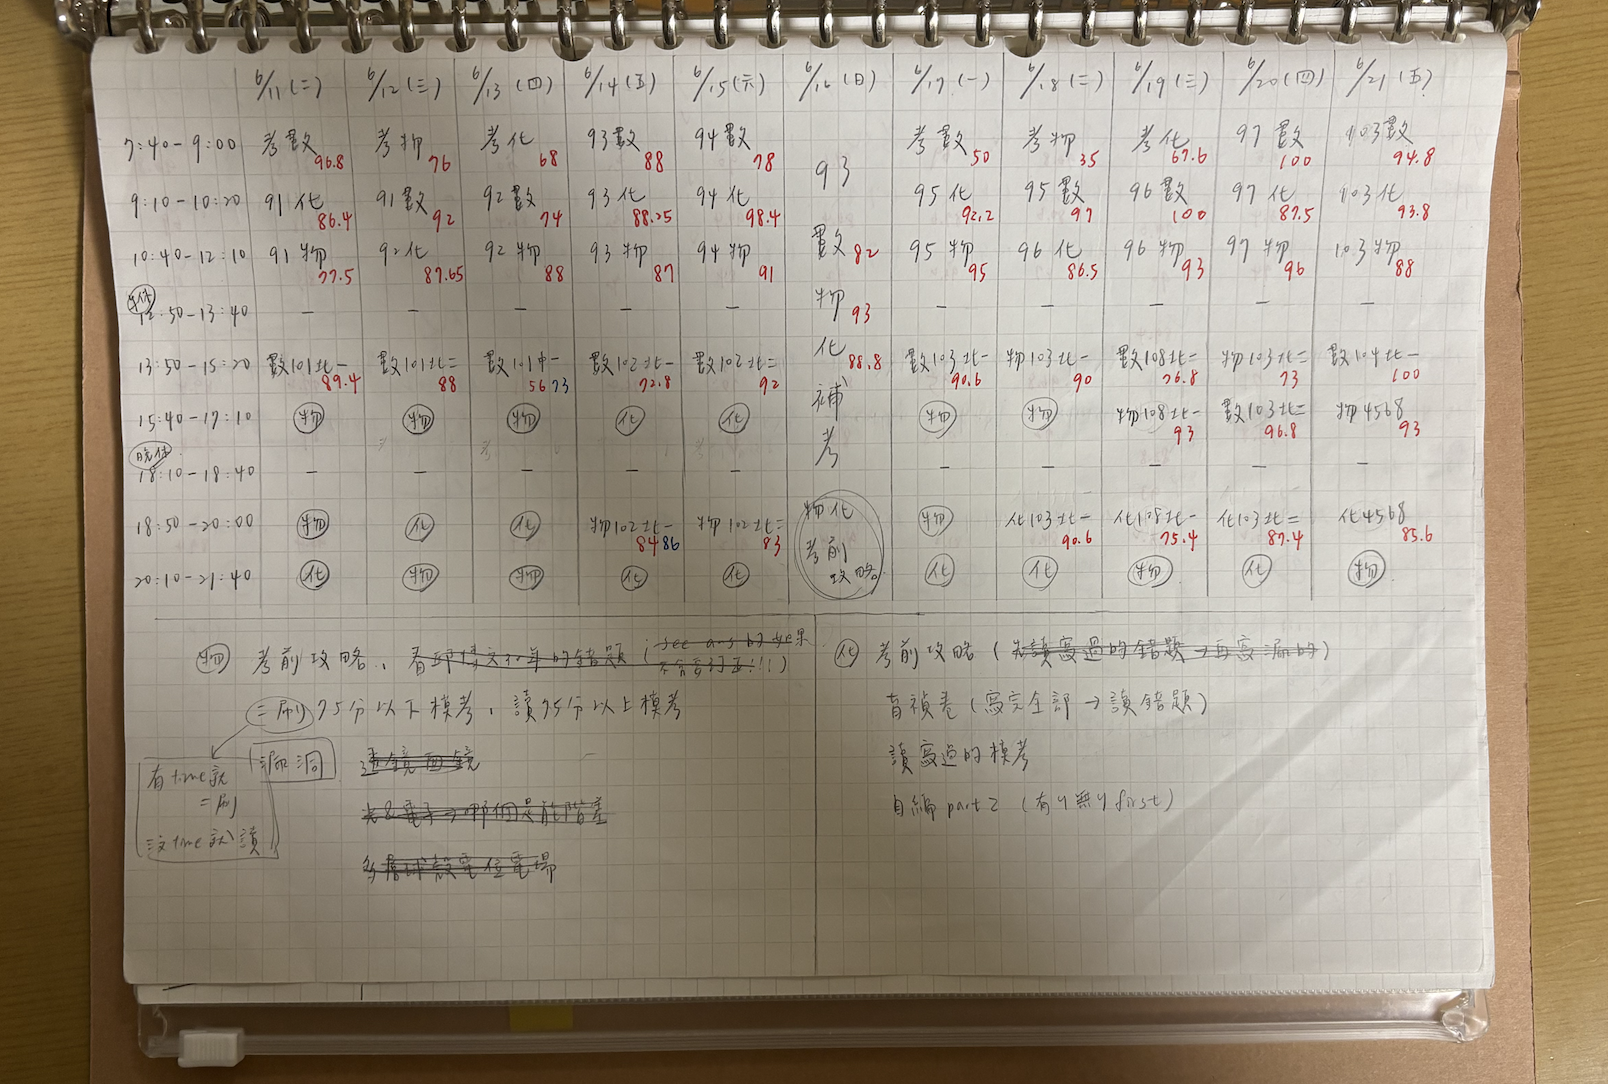 6/11 (二) 6/12 (三) 6/13 (四) 6/14 (五) 6/15 (六) 6/16 (日) 6/17 (一) 6/18 (二) 6/19 (三) 6/20 (四) 6/21 (五)
7:40-9:00 考數 96.8 考物 76 考化 68 93數 88 94數 78 考數 50 考物 35 考化 67.6 97數 100 103數 94.8
93
9:10-10:20 91化 86.4 91數 92 92數 74 93化 88.25 94化 98.4 95化 92.2 95數 97 96數 100 97化 87.5 103化 93.8
10:40-12:10 91物 77.5 92化 87.65 92物 88 93物 87 94物 91 數 82 95物 95 96化 86.5 96物 93 97物 96 103物 88
午休
12:50-13:40 - - - - - 物 93 - - - - -
13:50-15:20 數101北一 89.4 數101北二 88 數101中一 56 73 數102北一 72.8 數102北二 92 化 88.8 數103北一 90.6 物103北一 90 數108北二 76.8 物103北二 73 數104北一 100
15:40-17:10 物 物 物 化 化 補 物 物 物108北一 93 數103北二 96.8 物4568 93
考
晚休
18:10-18:40 - - - - - - - - - -
18:50-20:00 物 化 化 物102北一 84 86 物102北二 83 物化 物 化103北一 90.6 化108北一 75.4 化103北二 87.4 化4568 85.6
考前
攻略
20:10-21:40 化 物 物 化 化 化 化 物 化 物
物 考前攻略、
二刷75分以下模考，讀75分以上模考
漏洞
透鏡面鏡
光&電子→哪個是能階差
球殼電位電場
有time就
二刷
沒time就讀
化 考前攻略 (先讀寫過的錯題→再寫漏的)
夜卷 (寫完全部→讀錯題)
讀寫過的模考
自編part2 (有y無y first)